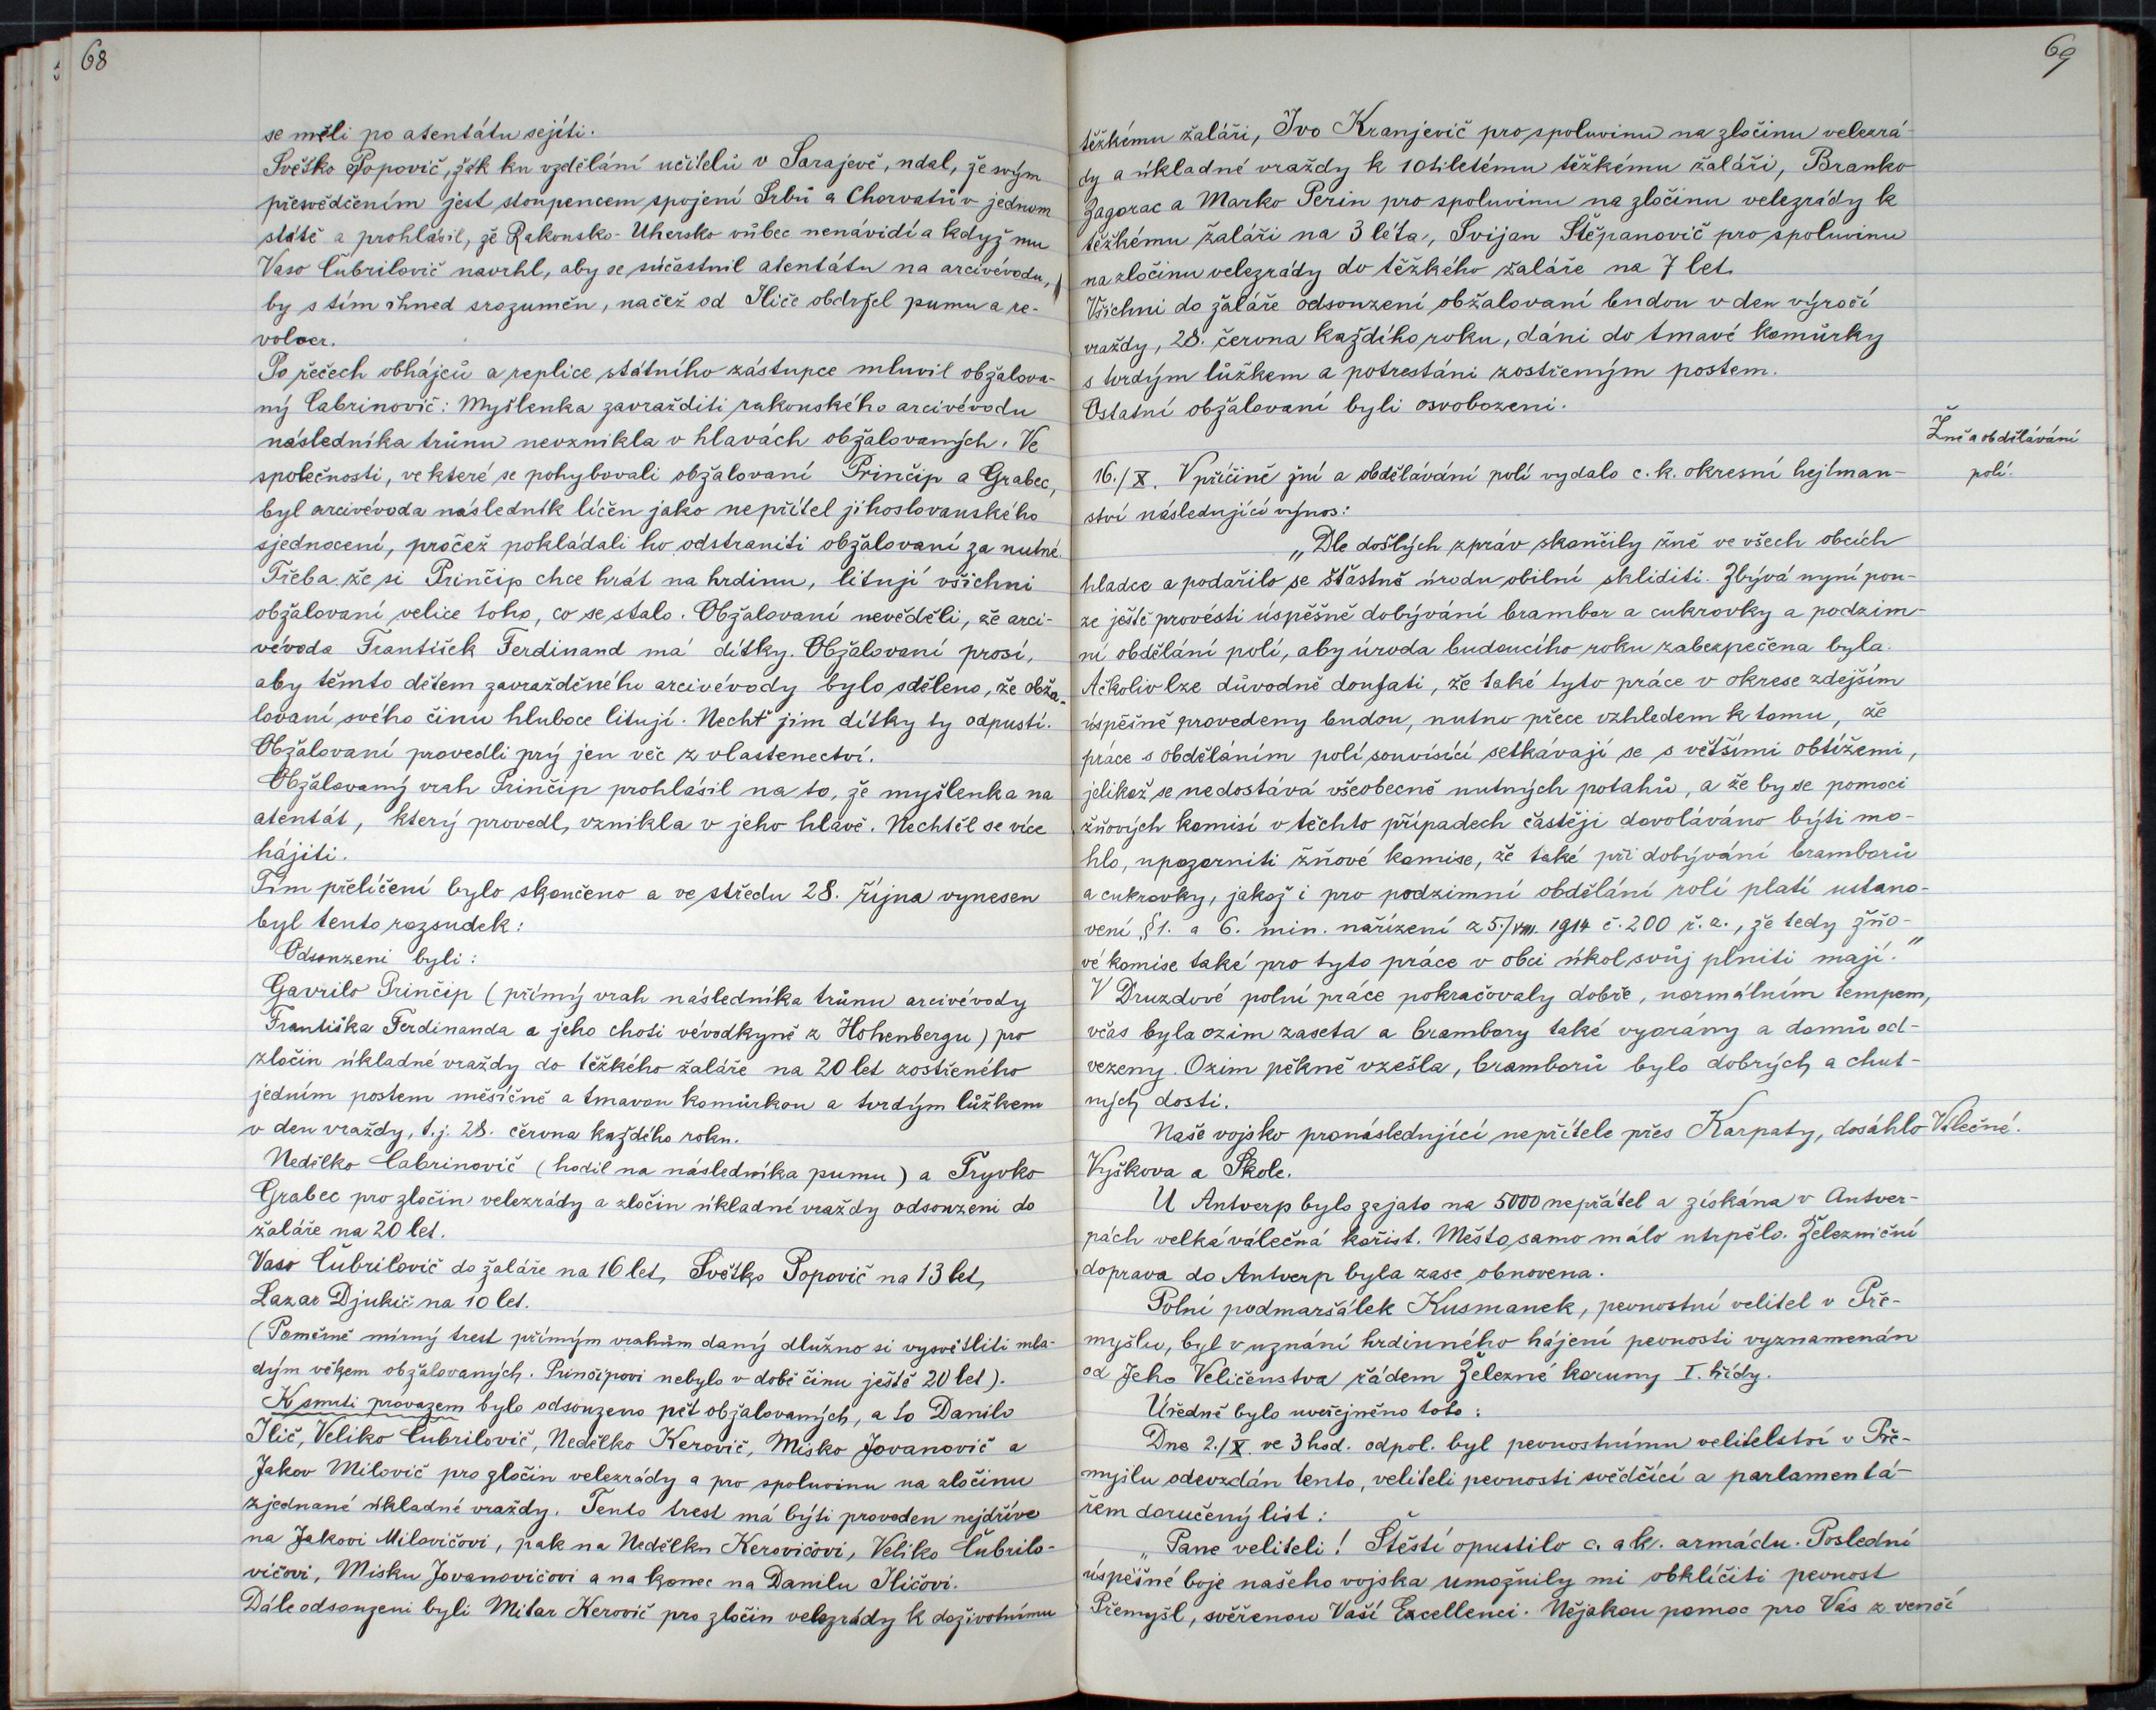 68
se měli po atentátu sejíti.
Světko Popovič, žák ku vzdělání učitelů v Sarajevě, udal, že svým
přesvědčením jest stoupencem spojení Srbů a Chorvatů v jednom
státě a prohlásil, že Rakousko-Uhersko vůbec nenávidí a když mu
Vaso Čubrilovič navrhl, aby se súčastnil atentátu na arcivévodu,
by s tím ihned srozuměn, načež od Iliče obdržel pumu a re-
volver.
Po řečech obhájců a replice státního zástupce mluvil obžalova-
ný Čabrinovič: Myšlenka zavražditi rakouského arcivévodu
následníka trůnu nevznikla v hlavách obžalovaných. Ve
společnosti, ve které se pohybovali obžalovaní Prinčip a Grabec,
byl arcivévoda následník líčen jako nepřítel jihoslovanského
sjednocení, pročež pokládali ho odstraniti obžalovaní za nutné.
Třeba že si Prinčip chce hrát na hrdinu, litují všichni
obžalovaní velice toho, co se stalo. Obžalovaní nevěděli, že arci-
vévoda František Ferdinand má dítky. Obžalovaní prosí,
aby těmto dětem zavražděného arcivévody bylo sděleno, že obža-
lovaní svého činu hluboce litují. Nechť jim dítky ty odpustí.
Obžalovaní provedli prý jen věc z vlastenectví.
Obžalovaný vrah Prinčip prohlásil na to, že myšlenka na
atentát, který provedl, vznikla v jeho hlavě. Nechtěl se více
hájiti.
Tím přelíčení bylo skončeno a ve středu 28. října vynesen
byl tento rozsudek:
Odsouzeni byli:
Gavrilo Prinčip (přímý vrah následníka trůnu arcivévody
Františka Ferdinanda a jeho choti vévodkyně z Hohenbergu) pro
zločin úkladné vraždy do těžkého žaláře na 20 let zostřeného
jedním postem měsíčně a tmavou komůrkou a tvrdým lůžkem
v den vraždy, t.j. 28. června každého roku.
Nedělko Čabrinovič (hodil na následníka pumu) a Tryvko
Grabec pro zločin velezrády a zločin úkladné vraždy odsouzeni do
žaláře na 20 let.
Vaso Čubrilovič do žaláře na 16 let, Světko Popovič na 13 let,
Lazar Djukič na 10 let.
(Poměrně mírný trest přímým vrahům daný dlužno si vysvětliti mla-
dým věkem obžalovaných. Prinčipovi nebylo v době činu ještě 20 let).
K smrti provazem bylo odsouzeno pět obžalovaných, a to Danilo
Ilič, Veliko Čubrilovič, Nedělko Kerovič, Misko Jovanovič a
Jakov Milovič pro zločin velezrády a pro spoluvinu na zločinu
zjednané úkladné vraždy. Tento trest má býti proveden nejdříve
na Jakovi Milovičovi, pak na Nedělku Kerovičovi, Veliko Čubrilo-
vičovi, Misku Jovanovičovi a na konec na Danilu Iličovi.
Dále odsouzeni byli Mitar Kerovič pro zločin velezrády k doživotnímu
69
těžkému žaláři, Ivo Kranjevič pro spoluvinu na zločinu velezrá-
dy a úkladné vraždy k 10tiletému těžkému žaláři, Branko
Zagorac a Marko Perin pro spoluvinu na zločinu velezrády k
těžkému žaláři na 3 léta, Svijan Štěpanovič pro spoluvinu
na zločinu velezrády do těžkého žaláře na 7 let.
Všichni do žaláře odsouzení obžalovaní budou v den výročí
vraždy, 28. června každého roku, dáni do tmavé komůrky
s tvrdým lůžkem a potrestáni zostřeným postem.
Ostatní obžalovaní byli osvobozeni.
Žně a obdělávání
polí.
16./X. V příčině žní a obdělávání polí vydalo c. k. okresní hejtman-
ství následující výnos:
„Dle došlých zpráv skončily žně ve všech obcích
hladce a podařilo se šťastně úrodu obilní skliditi. Zbývá nyní pou-
ze ještě provésti úspěšně dobývání brambor a cukrovky a podzim-
ní obdělání polí, aby úroda budoucího roku zabezpečena byla.
Ačkoliv lze důvodně doufati, že také tyto práce v okrese zdejším
úspěšně provedeny budou, nutno přece vzhledem k tomu, že
práce s obděláním polí souvisící setkávají se s většími obtížemi,
jelikož se nedostává všeobecně nutných potahů, a že by se pomoci
žňových komisí v těchto případech častěji dovoláváno býti mo-
hlo, upozorniti žňové komise, že také při dobývání bramborů
a cukrovky, jakož i pro podzimní obdělání rolí platí ustano-
vení § 1. a 6. min. nařízení z 5./VIII. 1914 č. 200 ř. z., že tedy žňo-
vé komise také pro tyto práce v obci úkol svůj plniti mají."
V Druzdové polní práce pokračovaly dobře, normálním tempem,
včas byla ozim zaseta a brambory také vyorány a domů od-
vezeny. Ozim pěkně vzešla, bramborů bylo dobrých a chut-
ných dosti.
Naše vojsko pronásledující nepřítele přes Karpaty, dosáhlo Válečné.
Vyškova a Skole.
U Antverp bylo zajato na 5000 nepřátel a získána v Antver-
pách velká válečná kořist. Město samo málo utrpělo. Železniční
doprava do Antverp byla zase obnovena.
Polní podmaršálek Kusmanek, pevnostní velitel v Pře-
myšlu, byl v uznání hrdinného hájení pevnosti vyznamenán
od Jeho Veličenstva řádem Železné koruny I. třídy.
Úředně bylo uveřejněno toto:
Dne 2./X. ve 3 hod. odpol. byl pevnostnímu velitelství v Pře-
myšlu odevzdán tento, veliteli pevnosti svědčící a parlamentá-
řem doručený list:
„Pane veliteli! Štěstí opustilo c. a k. armádu. Poslední
úspěšné boje našeho vojska umožnily mi obklíčiti pevnost
Přemyšl, svěřenou Vaší Excellenci. Nějakou pomoc pro Vás z venčí